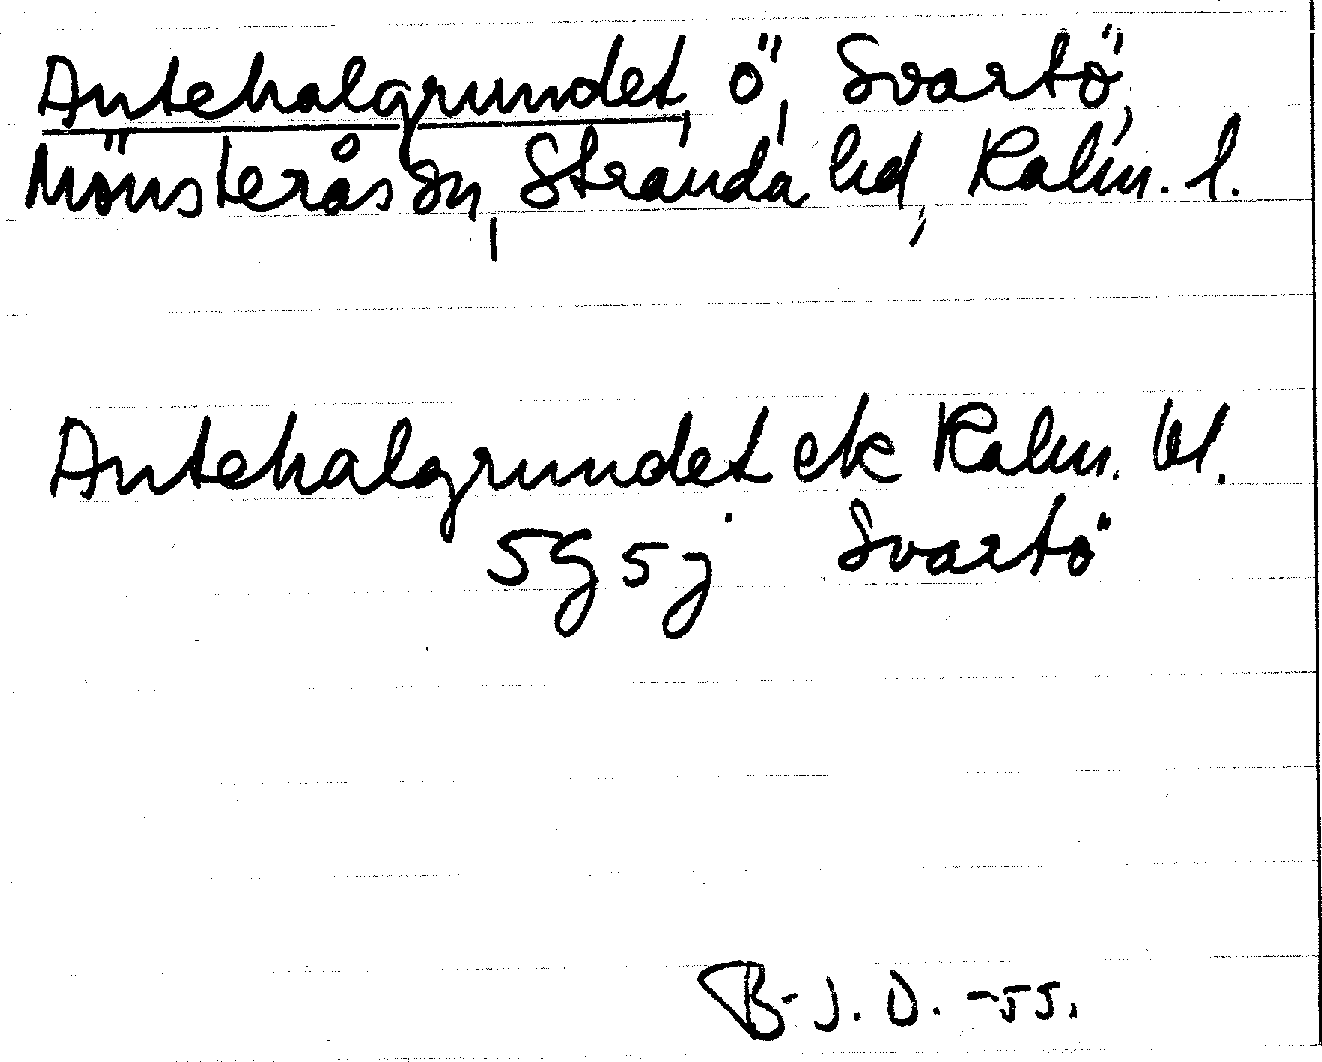 Antehalgrundet, ö, Svartö,
Mönsterås sn, Stranda hd, Kalm. l.
Antehalgrundet ek Kalm. bl.
5g5j Svartö
B-J.O. -55.